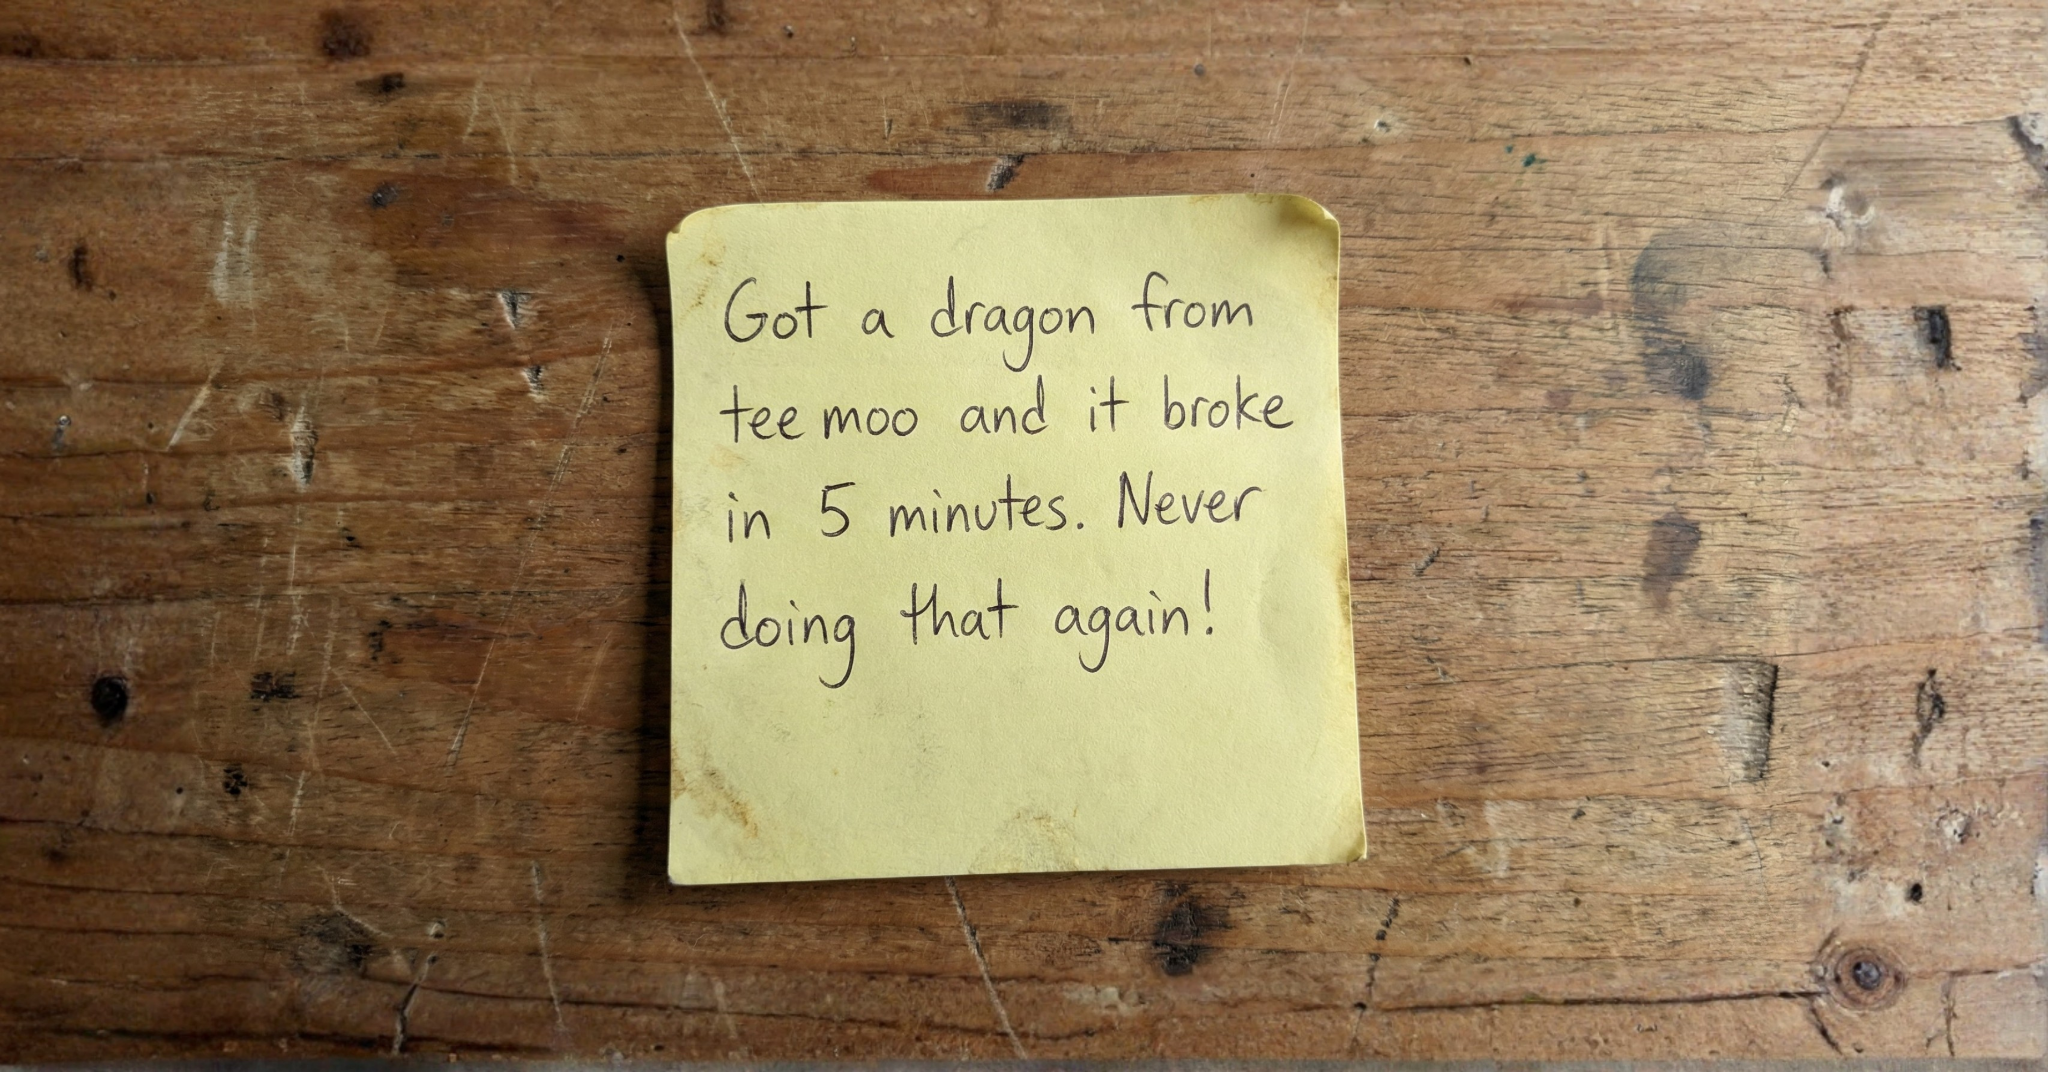 Got a dragon from
tee moo and it broke
in 5 minutes. Never
doing that again!